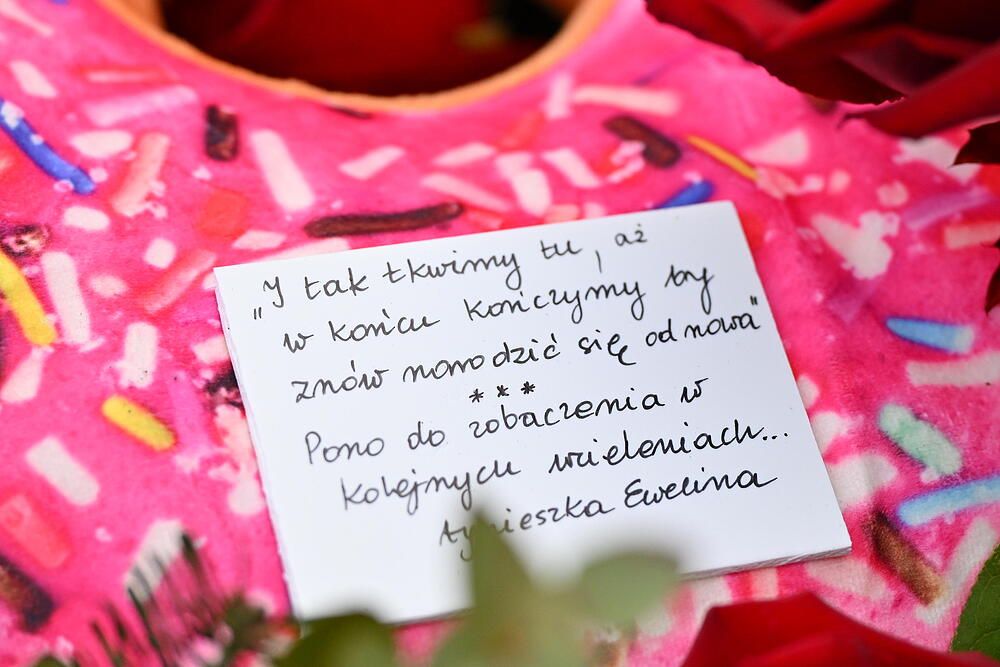 „I tak tkwimy tu, aż
w końcu kończymy by
znów narodzić się od nowa"
***
Pono do zobaczenia w
kolejnych wcieleniach...
Agnieszka Ewelina